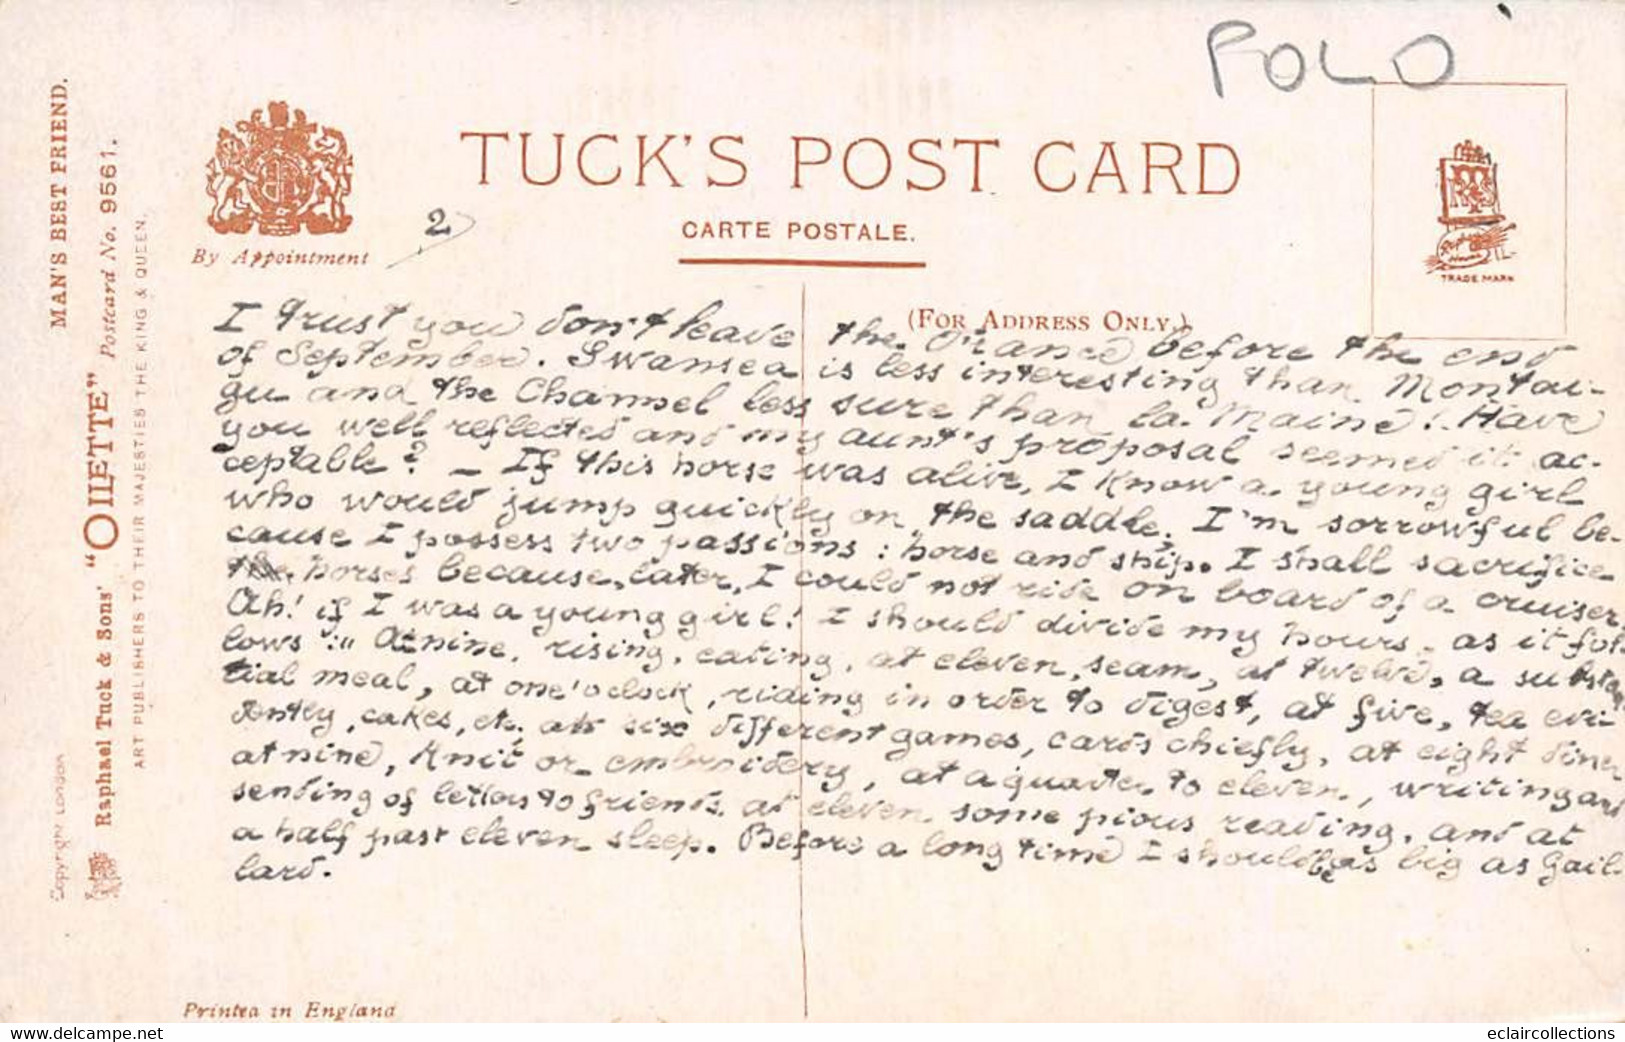 POLO
MAN'S BEST FRIEND.
"OILETTE" Postcard No. 9561.
Raphael Tuck & Sons'
ART PUBLISHERS TO THEIR MAJESTIES THE KING & QUEEN.
Copyright London
By Appointment
2
TUCK'S POST CARD
CARTE POSTALE.
(FOR ADDRESS ONLY.)
TRADE MARK
I trust you don't leave the before the end
of September. Swansea is less interesting than Montai-
gu and the Channel less sure than la Maine! Have
you well reflected and my aunt's proposal seemed it ac-
ceptable? – If this horse was alive, I know a young girl
who would jump quickly on the saddle. I'm sorrowful be-
cause I possess two passions: horse and ship. I shall sacrifice
the horses because, later, I could not ride on board of a cruiser.
Ah! if I was a young girl! I should divide my hours, as it fol-
lows: At nine, rising, eating, at eleven, seam, at twelve, a substan
tial meal, at one o'clock, riding in order to digest, at five, tea evi
dently, cakes, etc, at six different games, cards chiefly, at eight diner
at nine, knit or embroidery, at a quarter to eleven, writing and
sending of letters to friends, at eleven some pious reading, and at
a half past eleven sleep. Before a long time I should be as big as Gail-
lard.
Printed in England
delcampe.net
eclaircollections